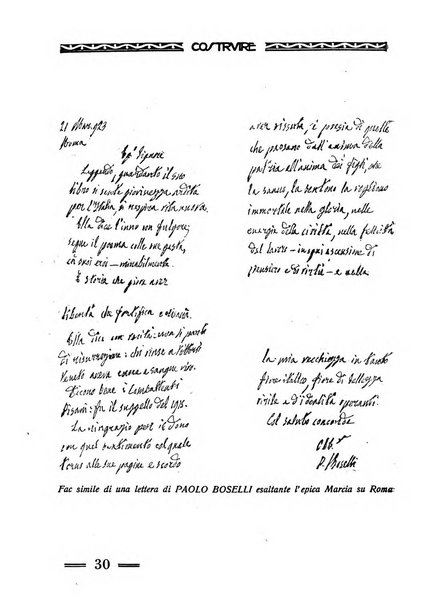 COSTRVIRE
21 Marzo 923
Roma
Eg° Signore
Leggendo, guardando il suo
libro si sente giovinezza ardita
per l'Italia, si respira vita nuova.
Ella dice l'inno un fulgore;
segue il poema colle sue gesta,
co' suoi eroi — mirabilmente.
È storia che giova aver
aver vissuta, è poesia di quelle
che passano dall'anima della
patria all'anima dei figli, che
la sanno, la sentono la vogliono
immortale nella gloria, nelle
energie della civiltà, nella felicità
del lavoro — in ogni ascensione di
pensiero e di virtù — e nella
libertà che
Ella dice con verità: non si parli
di risurrezione: chi vinse a Vittorio
Veneto aveva cuore e sangue vivo.
Dicono bene i Combattenti
Pisani: fu il suggello del 1918.
La ringrazio per il dono
con quel sentimento col quale
torno alle sue pagine e scordo
la mia vecchiezza in tanto
fiore italico, fiore di bellezza
virile e d'idealità operanti.
Col saluto concorde
P. Boselli
Fac simile di una lettera di PAOLO BOSELLI esaltante l'epica Marcia su Roma
30